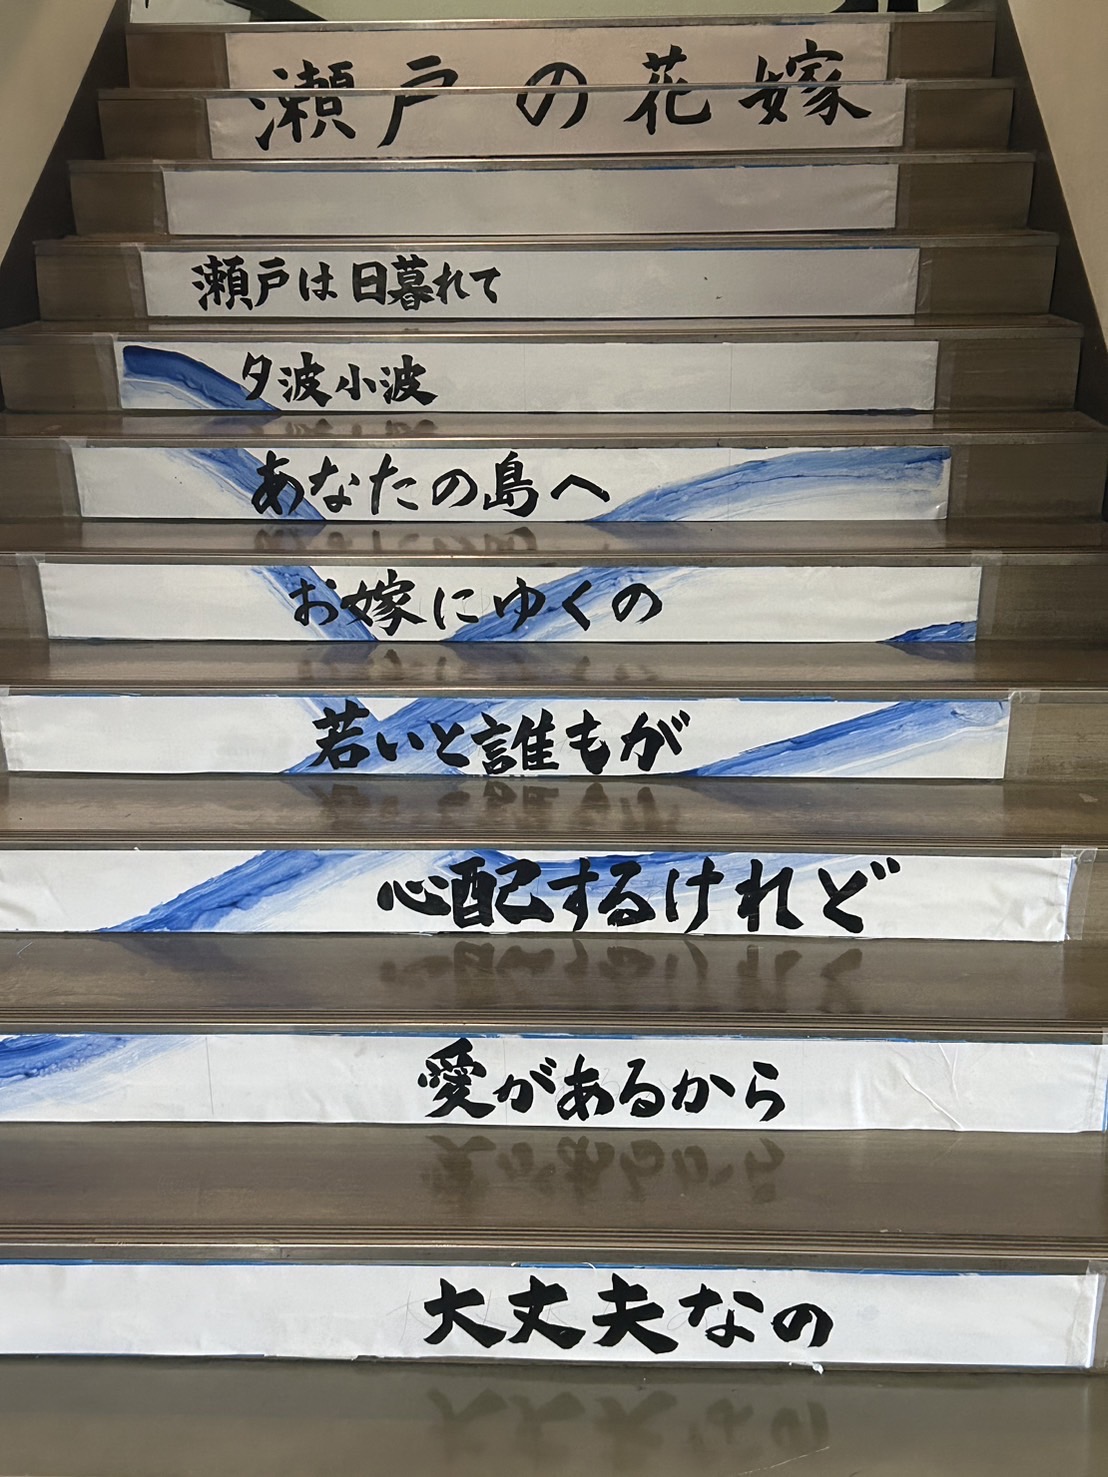 瀬戸の花嫁
瀬戸は日暮れて
夕波小波
あなたの島へ
お嫁にゆくの
若いと誰もが
心配するけれど
愛があるから
大丈夫なの